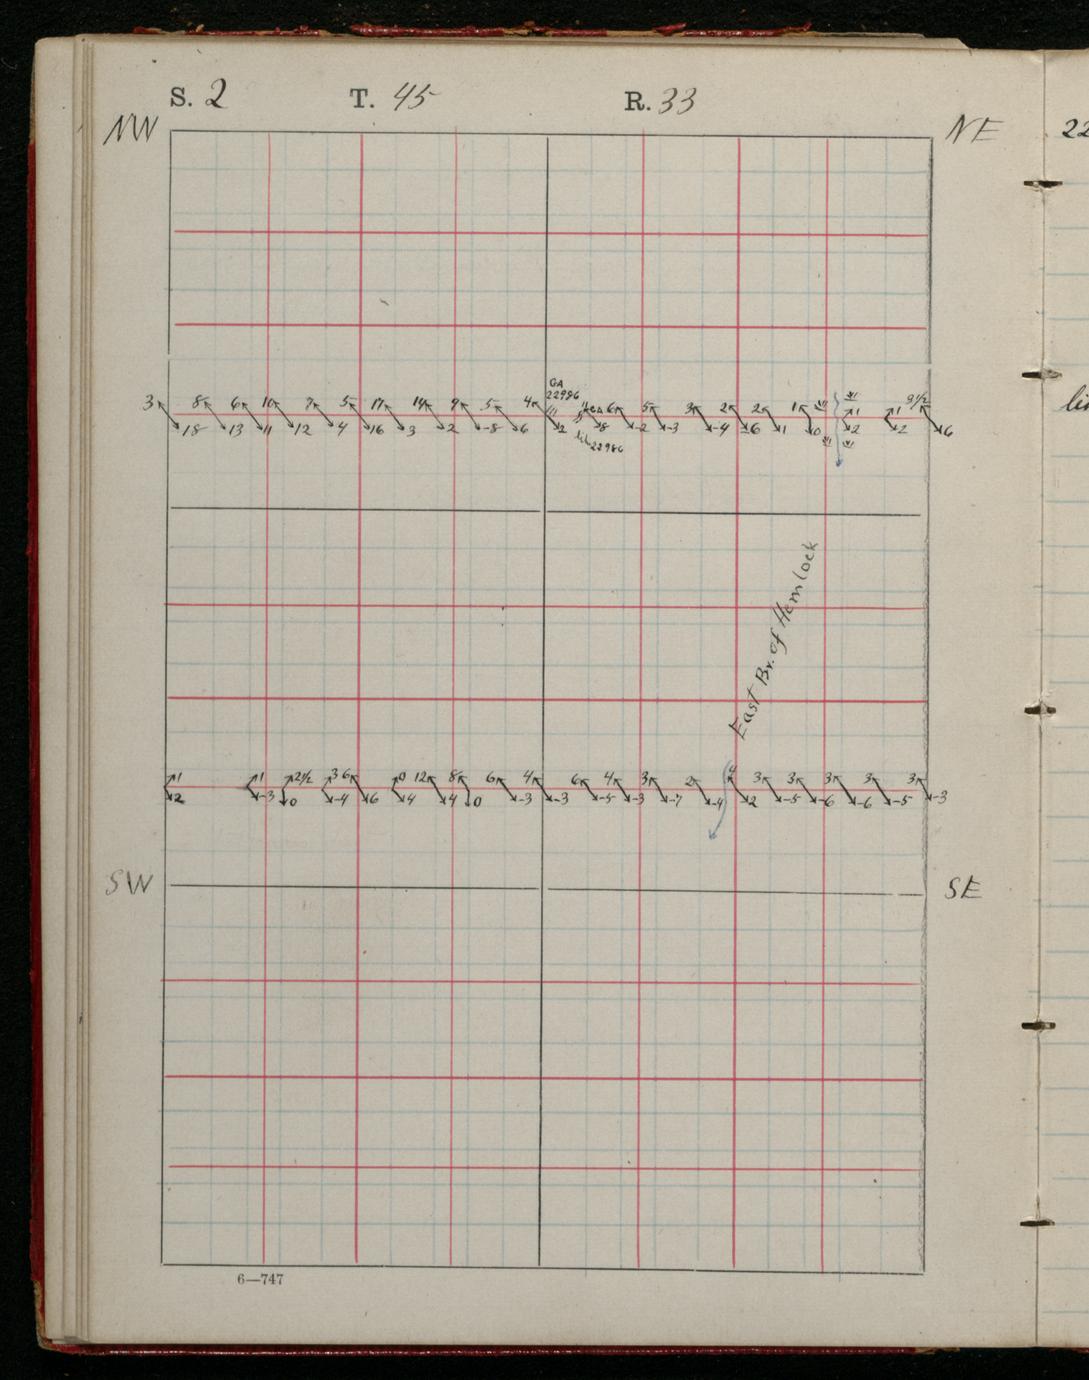 S. 2 T. 45 R. 33
NW NE 22
GA
22996
3 8 6 10 7 5 17 14 9 5 4 6 5 3 2 2 1 1 1 9 1/2
18 13 11 12 4 16 3 2 -8 6 2 8 -2 -3 -4 6 1 0 2 2 6
22986
East Br. of Hemlock
1 1 2 1/2 3 6 0 12 8 6 4 6 4 3 2 4 3 3 3 3 3
2 -3 0 -4 6 4 4 0 -3 -3 -5 -3 -7 -4 2 -5 -6 -6 -5 -3
SW SE
6—747